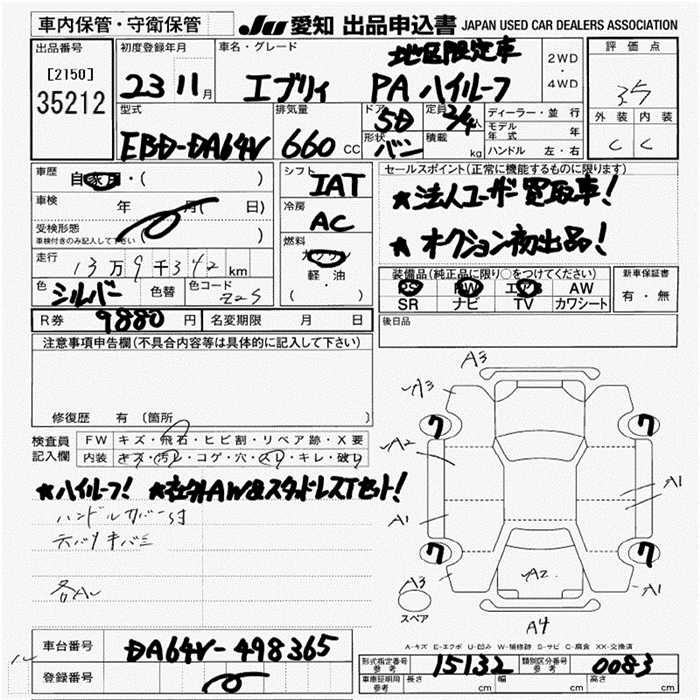 車内保管・守衛保管
JU 愛知 出品申込書 JAPAN USED CAR DEALERS ASSOCIATION
出品番号
[2150]
35212
初度登録年月
23 11月
車名・グレード
地区限定車
エブリィ PA ハイルーフ
2WD
・
4WD
評価点
3.5
外装 内装
C C
型式
EBD-DA64V
排気量
660 cc
ドア
5D
形状
バン
定員
2/4人
積載
kg
ディーラー・並行
モデル年式 年
ハンドル 左・右
車歴
自家用・( )
車検
年 月( 日)
受検形態
車検付きのみ記入して下さい ( )
走行
13万9千342km
色
シルバー
色替
色コード
Z2S
シフト
IAT
冷房
AC
燃料
ガソリン
軽・油
( ・ )
セールスポイント(正常に機能するものに限ります)
★法人ユーザー買取車!
★オークション初出品!
装備品(純正品に限り○をつけてください)
PS PW エアB AW
SR ナビ TV カワシート
新車保証書
有・無
R券 9880 円
名変期限 月 日
後日品
注意事項申告欄(不具合内容等は具体的に記入して下さい)
修復歴 有 〔箇所 〕
検査員記入欄
FW キズ・飛石・ヒビ割・リペア跡・X要
内装 キズ・汚れ・コゲ・穴・スレ・キレ・破れ
★ハイルーフ! ★社外AW&スタッドレスTセット!
ハンドルカバー付
天バリキバミ
A3
A3
7 7
A2
A1
A1
7 7
A3
A2
A1
スペア
A4
A-キズ E-エクボ U-凹み W-補修跡 S-サビ C-腐食 XX-交換済
車台番号
DA64V-498365
登録番号
形式指定番号
参考
15132
類別区分番号
参考
0083
車庫証明用
参考
長さ cm
幅 cm
高さ cm